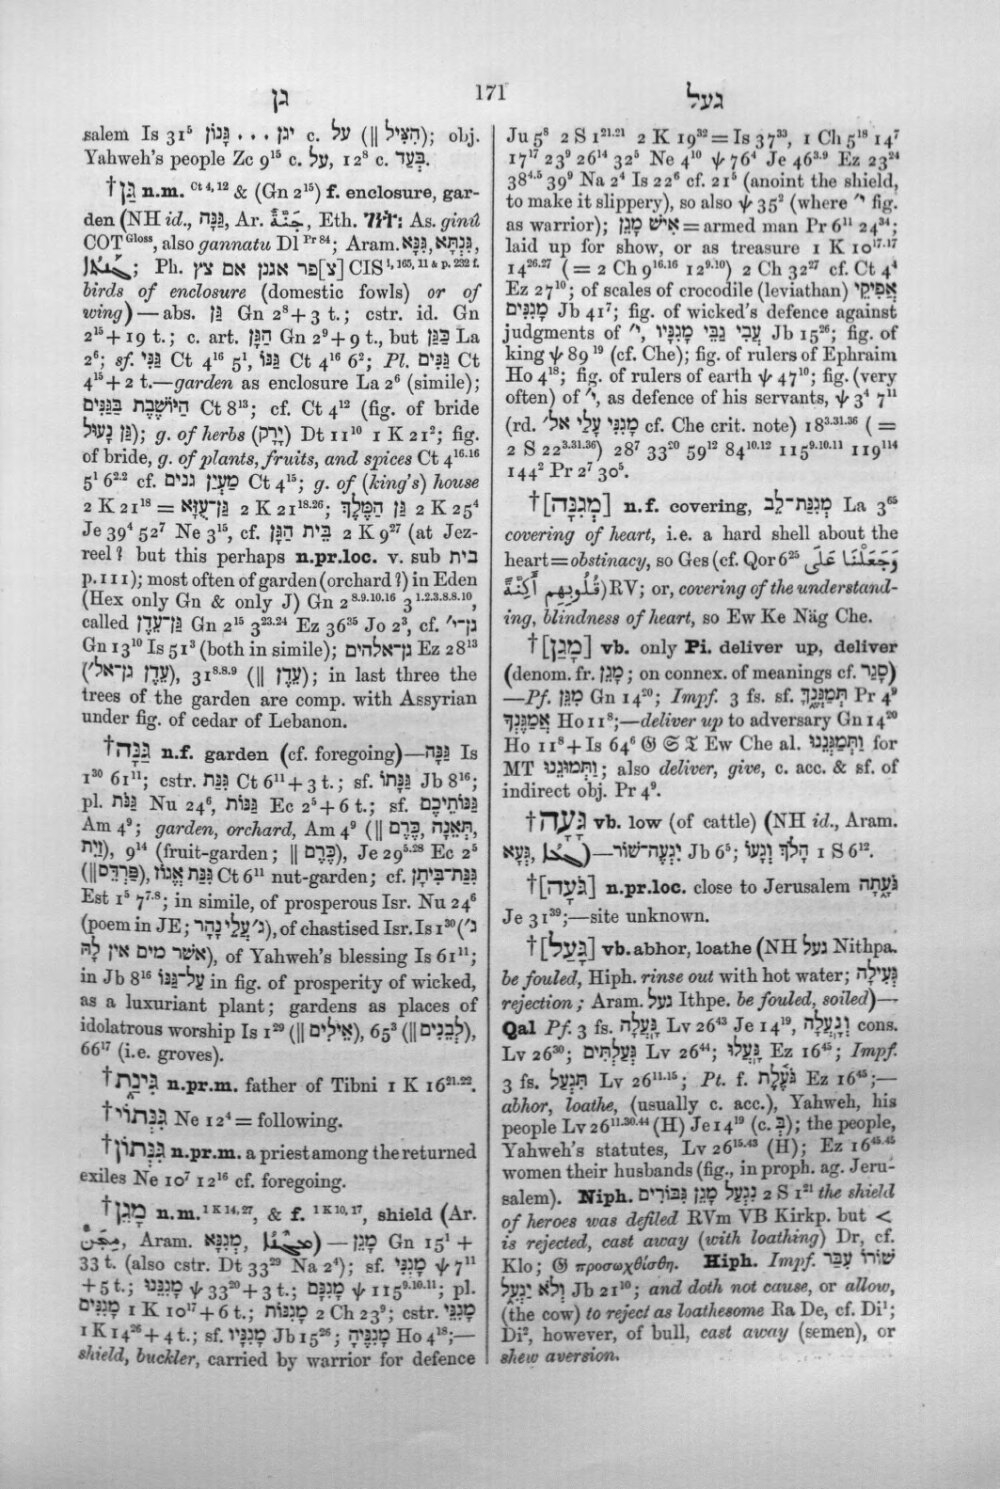 גן
171
געל
salem Is 31⁵ יגן c. על (‖ הִצִּיל) ... גָּנוֹן; obj.
Yahweh's people Zc 9¹⁵ c. עַל, 12⁸ c. בְּעַד.
†גַּן n.m. Ct 4, 12 & (Gn 2¹⁵) f. enclosure, gar-
den (NH id., גִּנָּה, Ar. جَنَّةٌ, Eth. As. ginû
COT Gloss, also gannatu Dl Pr 84; Aram. גִּנְּתָא, גִּנָּא,
; Ph. צ]פר אגנן אם צץ] CIS i, 165, 11 & p. 232 f.
birds of enclosure (domestic fowls) or of
wing)—abs. גַּן Gn 2⁸+3 t.; cstr. id. Gn
2¹⁵+19 t.; c. art. הַגָּן Gn 2⁹+9 t., but גַּן La
2⁶; sf. גַּנִּי Ct 4¹⁶ 5¹, גַּנּוֹ Ct 4¹⁶ 6²; Pl. גַּנִּים Ct
4¹⁵+2 t.—garden as enclosure La 2⁶ (simile);
הַיּוֹשֶׁבֶת בַּגַּנִּים Ct 8¹³; cf. Ct 4¹² (fig. of bride
גַּן נָעוּל); g. of herbs (יָרָק) Dt 11¹⁰ 1 K 21²; fig.
of bride, g. of plants, fruits, and spices Ct 4¹⁶·¹⁶
5¹ 6²·² cf. מַעְיַן גנים Ct 4¹⁵; g. of (king's) house
2 K 21¹⁸ = גַּן־עֻזָּא 2 K 21¹⁸·²⁶; גַּן הַמֶּלֶךְ 2 K 25⁴
Je 39⁴ 52⁷ Ne 3¹⁵, cf. בֵּית הַגָּן 2 K 9²⁷ (at Jez-
reel? but this perhaps n.pr.loc. v. sub בית
p. 111); most often of garden (orchard?) in Eden
(Hex only Gn & only J) Gn 2⁸·⁹·¹⁰·¹⁶ 3¹·²·³·⁸·⁸·¹⁰,
called גַּן־עֵדֶן Gn 2¹⁵ 3²³·²⁴ Ez 36³⁵ Jo 2³, cf. גן־י׳
Gn 13¹⁰ Is 51³ (both in simile); גן־אלהים Ez 28¹³
(עֵדֶן גן־אל׳), 31⁸·⁸·⁹ (‖ עֵדֶן); in last three the
trees of the garden are comp. with Assyrian
under fig. of cedar of Lebanon.
†גַּנָּה n.f. garden (cf. foregoing)—גַּנָּה Is
1³⁰ 61¹¹; cstr. גִּנַּת Ct 6¹¹+3 t.; sf. גַּנָּתוֹ Jb 8¹⁶;
pl. גַּנֹּת Nu 24⁶, גַּנּוֹת Ec 2⁵+6 t.; sf. גַּנּוֹתֵיכֶם
Am 4⁹; garden, orchard, Am 4⁹ (‖ כֶּרֶם, תְּאֵנָה,
זַיִת), 9¹⁴ (fruit-garden; ‖ כֶּרֶם), Je 29⁵·²⁸ Ec 2⁵
(‖ פַּרְדֵּס), גִּנַּת אֱגוֹז Ct 6¹¹ nut-garden; cf. גִּנַּת־בִּיתָן
Est 1⁵ 7⁷·⁸; in simile, of prosperous Isr. Nu 24⁶
(poem in JE; ג׳ עֲלֵי נָהָר), of chastised Isr. Is 1³⁰ (ג׳
אשר מים אין לָהּ), of Yahweh's blessing Is 61¹¹;
in Jb 8¹⁶ עַל־גַּנּוֹ in fig. of prosperity of wicked,
as a luxuriant plant; gardens as places of
idolatrous worship Is 1²⁹ (‖ אֵילִים), 65³ (‖ לְבֵנִים),
66¹⁷ (i.e. groves).
†גִּינַת n.pr.m. father of Tibni 1 K 16²¹·²².
†גִּנְּתוֹי Ne 12⁴ = following.
†גִּנְּתוֹן n.pr.m. a priest among the returned
exiles Ne 10⁷ 12¹⁶ cf. foregoing.
†מָגֵן n.m. 1 K 14, 27, & f. 1 K 10, 17, shield (Ar.
مِجَنّ, Aram. מְגִנָּא, )—מָגֵן Gn 15¹+
33 t. (also cstr. Dt 33²⁹ Na 2⁴); sf. מָגִנִּי ψ 7¹¹
+5 t.; מָגִנֵּנוּ ψ 33²⁰+3 t.; מָגִנָּם ψ 115⁹·¹⁰·¹¹; pl.
מָגִנִּים 1 K 10¹⁷+6 t.; מָגִנּוֹת 2 Ch 23⁹; cstr. מָגִנֵּי
1 K 14²⁶+4 t.; sf. מָגִנָּיו Jb 15²⁶; מָגִנֶּיהָ Ho 4¹⁸;—
shield, buckler, carried by warrior for defence
Ju 5⁸ 2 S 1²¹·²¹ 2 K 19³² = Is 37³³, 1 Ch 5¹⁸ 14⁷
17¹⁷ 23⁹ 26¹⁴ 32⁵ Ne 4¹⁰ ψ 76⁴ Je 46³·⁹ Ez 23²⁴
38⁴·⁵ 39⁹ Na 2⁴ Is 22⁶ cf. 21⁵ (anoint the shield,
to make it slippery), so also ψ 35² (where י׳ fig.
as warrior); אִישׁ מָגֵן = armed man Pr 6¹¹ 24³⁴;
laid up for show, or as treasure 1 K 10¹⁷·¹⁷
14²⁶·²⁷ (= 2 Ch 9¹⁶·¹⁶ 12⁹·¹⁰) 2 Ch 32²⁷ cf. Ct 4⁴
Ez 27¹⁰; of scales of crocodile (leviathan) אֲפִיקֵי
מָגִנִּים Jb 41⁷; fig. of wicked's defence against
judgments of י׳, עֲבִי גַּבֵּי מָגִנָּיו Jb 15²⁶; fig. of
king ψ 89¹⁹ (cf. Che); fig. of rulers of Ephraim
Ho 4¹⁸; fig. of rulers of earth ψ 47¹⁰; fig. (very
often) of י׳, as defence of his servants, ψ 3⁴ 7¹¹
(rd. מָגִנִּי עָלַי אל׳ cf. Che crit. note) 18³·³¹·³⁶ (=
2 S 22³·³¹·³⁶) 28⁷ 33²⁰ 59¹² 84¹⁰·¹² 115⁹·¹⁰·¹¹ 119¹¹⁴
144² Pr 2⁷ 30⁵.
†[מְגִנָּה] n.f. covering, מְגִנַּת־לֵב La 3⁶⁵
covering of heart, i.e. a hard shell about the
heart = obstinacy, so Ges (cf. Qor 6²⁵ وَجَعَلْنَا عَلَى
قُلُوبِهِم أَكِنَّةً) RV; or, covering of the understand-
ing, blindness of heart, so Ew Ke Näg Che.
†[מָגַן] vb. only Pi. deliver up, deliver
(denom. fr. מָגֵן; on connex. of meanings cf. סָגַר)
—Pf. מִגֵּן Gn 14²⁰; Impf. 3 fs. sf. תְּמַגְּנֶךָּ Pr 4⁹
אֲמַגֶּנְךָ Ho 11⁸;—deliver up to adversary Gn 14²⁰
Ho 11⁸+Is 64⁶ 𝔊 𝔖 𝔗 Ew Che al. וַתְּמַגְּנֵנוּ for
MT וַתְּמוּגֵנוּ; also deliver, give, c. acc. & sf. of
indirect obj. Pr 4⁹.
†גָּעָה vb. low (of cattle) (NH id., Aram.
גְּעָא, )—יִגְעֶה־שּׁוֹר Jb 6⁵; הָלֹךְ וְגָעוֹ 1 S 6¹².
†[גֹּעָה] n.pr.loc. close to Jerusalem גֹּעָתָה
Je 31³⁹;—site unknown.
†[גָּעַל] vb. abhor, loathe (NH געל Nithpa.
be fouled, Hiph. rinse out with hot water; גְּעִילָה
rejection; Aram. געל Ithpe. be fouled, soiled)—
Qal Pf. 3 fs. גָּעֲלָה Lv 26⁴³ Je 14¹⁹, וְגָעֲלָה cons.
Lv 26³⁰; גְּעַלְתִּים Lv 26⁴⁴; גָּעֲלוּ Ez 16⁴⁵; Impf.
3 fs. תִּגְעַל Lv 26¹¹·¹⁵; Pt. f. גֹּעֶלֶת Ez 16⁴⁵;—
abhor, loathe, (usually c. acc.), Yahweh, his
people Lv 26¹¹·³⁰·⁴⁴ (H) Je 14¹⁹ (c. בְּ); the people,
Yahweh's statutes, Lv 26¹⁵·⁴³ (H); Ez 16⁴⁵·⁴⁵
women their husbands (fig., in proph. ag. Jeru-
salem). Niph. נִגְעַל מָגֵן גִּבּוֹרִים 2 S 1²¹ the shield
of heroes was defiled RVm VB Kirkp. but <
is rejected, cast away (with loathing) Dr, cf.
Klo; 𝔊 προσωχθίσθη. Hiph. Impf. שׁוֹרוֹ עִבַּר
וְלֹא יַגְעִל Jb 21¹⁰; and doth not cause, or allow,
(the cow) to reject as loathesome Ra De, cf. Di¹;
Di², however, of bull, cast away (semen), or
shew aversion.